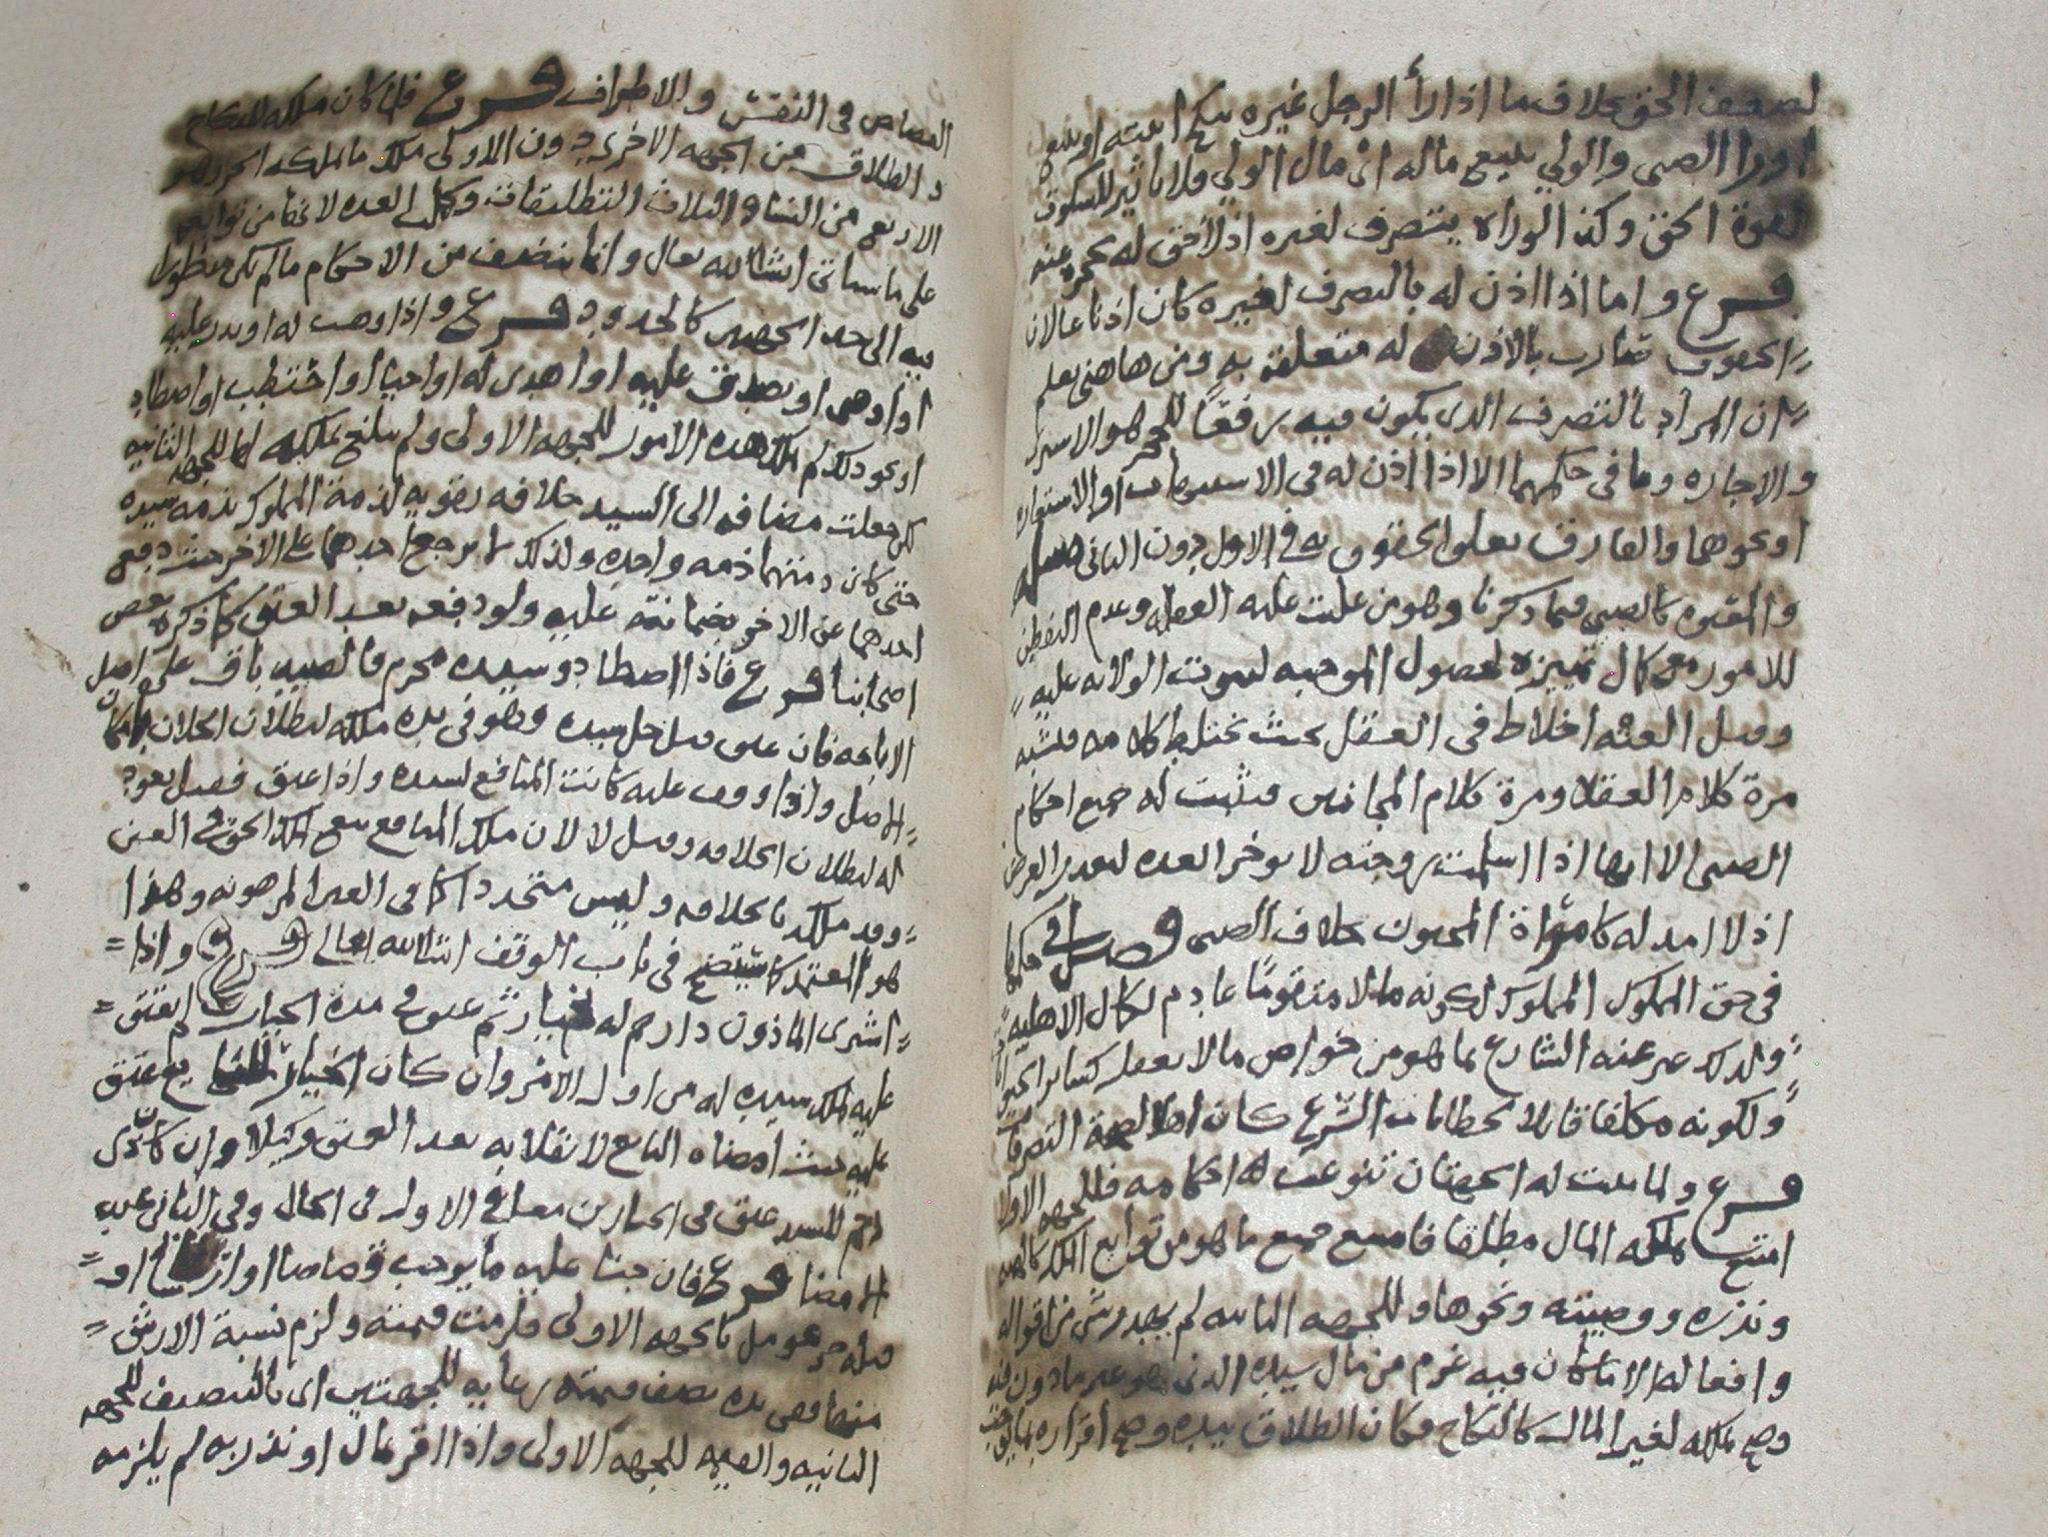 لضعف الحق بخلاف ما اذا رأ الرجل غيره ينكح ابنته او
او را الصبي والولي يبيع ماله اي مال الولي فلا تاثير للسكوت
لقوة الحق وكذا لو راه يتصرف لغيره اذ لا حق له
فرع واما اذا اذن له بالتصرف لغيره كان اذنا عا لان
الحقوق بالاذن له متعلقة به ومن هاهنى يعلم
ان المراد بالتصرف الذي يكون فيه رفعًا للحجر هو
والاجاره وما في حكمهما الا اذا اذن له في او الاستعاره
او نحوها والفارق تعلق الحقوق به في الاول دون الثاني
والمعتوه كالصبي فيما ذكرنا وهو من غلبت عليه الغفله وعدم التفطن
للامور مع كمال تمييزه لحصول الموجبه لثبوت الولايه عليه
وقيل العته اخلاط في العقل بحيث يختلط كلامه فيشبه
مرة كلام العقلا ومرة كلام المجانين فتثبت له جميع احكام
الصبى الا انها اذا اسلمت زوجته لا يوخر
اذ لا امد له كامراة المجنون بخلاف الصبى فصل في
في حق المملوك المملوك لكونه مالا متقومًا عادم لكمال الاهليه
ولذلك عبر عنه الشارع بما هو من خواص مالا يعقل كساير
ولكونه مكلفا قابلا لخطابات الشرع كان اهلا لصحة التصرفات
فرع ولما ثبت له الجهتان تنوعت له احكامه فللجهه الاولا
امتنع ملكه المال مطلقا فامتنع جميع ما هو من توابع الملك كالهبه
ونذره ووصيته ونحوها وللجهه الثانيه لم يهدر شي من اقواله
وافعاله الا ما كان فيه غرم من مال سيده الذي هو غير ماذون فيه
وصح تملكه لغير المال كالنكاح وكان الطلاق بيده وصح اقراره بما يوجب
القصاص في النفس والاطراف فرع فلما كان ملكه للنكاح
والطلاق من الجهه الاخرى دون الاولى ملك ما يملكه الحر وهو
الاربع من النسا والثلاث التطليقات وكمال العده لانها من توابعه
على ما سياتي انشا الله تعالى وانما ينصف من الاحكام ما لم يكن منظورا
فيه الى احد الجهتين كالحدود فرع واذا وهب له او نذر عليه
او اوصى او تصدق عليه او اهدى له او احيا او احتطب او اصطاد
او نحو ذلك لم يملك هذه الامور للجهه الاولى ولم يلغ تملكه لها للجهه الثانيه
بل جعلت مضافه الى السيد خلافه تقويه لذمة المملوك بذمه سيده
حتى كان ذمتهما ذمه واحده ولذلك لا يرجع احدهما على الاخر حيث دفع
احدهما عن الاخر بضمانته عليه ولو دفعه بعد العتق كما ذكره بعض
اصحابنا فرع فاذا اصطاد وسيده محرم فالصيد باق على اصل
الاباحه فان عتق قبل حل سيده وهو في يده ملكه لبطلان الخلافه
الاصل واذا وقف عليه كانت المنافع لسيده واذا عتق فقيل يعود
له لبطلان الخلافه وقيل لا لان ملك المنافع يتبع ملك الحق في العين
وقد ملكه بالخلافه وليس متجددا كما في العين المرهونه وهذا
هو المعتمد كما سيتضح في باب الوقف انشا الله تعالى فرع واذا
اشترى الماذون ذا رحم له بخيار ثم عتق في مدة الخيار لم يعتق
عليه لملك سيده له من اول الامر وان كان الخيار للبايع عتق
عليه حيث امضاه البائع لانقلابه بعد العتق وكيلا وان كان ذي
رحم للسيد عتق في الخيارين معا في الاول في الحال وفي الثاني عقيب
الامضا فرع فان جنا عليه ما يوجب قصاصا او ارشا او
قتله حر عومل بالجهه الاولى فلزمت قيمته ولزم نسبة الارش
منها ففي يده نصف قيمته رعايه للجهتين اي بالتنصيف للجهه
الثانيه والقيمه للجهه الاولى واذا اقر بمال او نذر به لم يلزمه